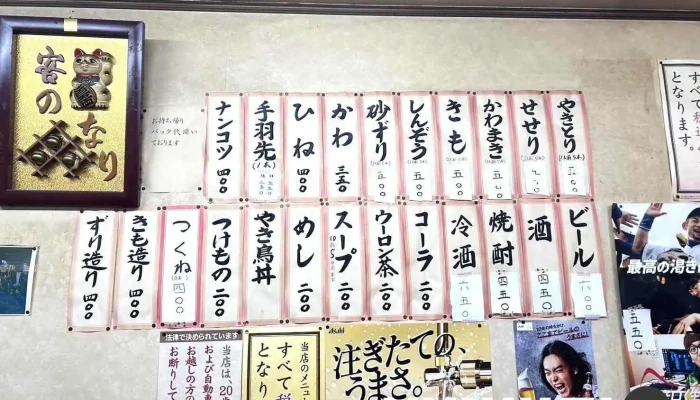 客の
なり
お持ち帰り
パック代頂いて
おります
やきとり
せせり
かわまき
きも
しんぞう
砂ずり
かわ 三五〇
ひね 四〇〇
手羽先(1本)
ナンコツ 四〇〇
ビール 六〇〇
酒 四五〇
焼酎 四五〇
冷酒 六五〇
コーラ 二〇〇
ウーロン茶 二〇〇
スープ 二〇〇
めし 二〇〇
やき鳥丼
つけもの 二〇〇
つくね 四〇〇
きも造り 四〇〇
ずり造り 四〇〇
すべて税
となります。
最高の渇き
五五〇
法律で決められています
当店は、20歳
および自動車
お越しの方の
お断りして
当店のメニュー
すべて税
となり
Asahi
注ぎたての、
うまさ。